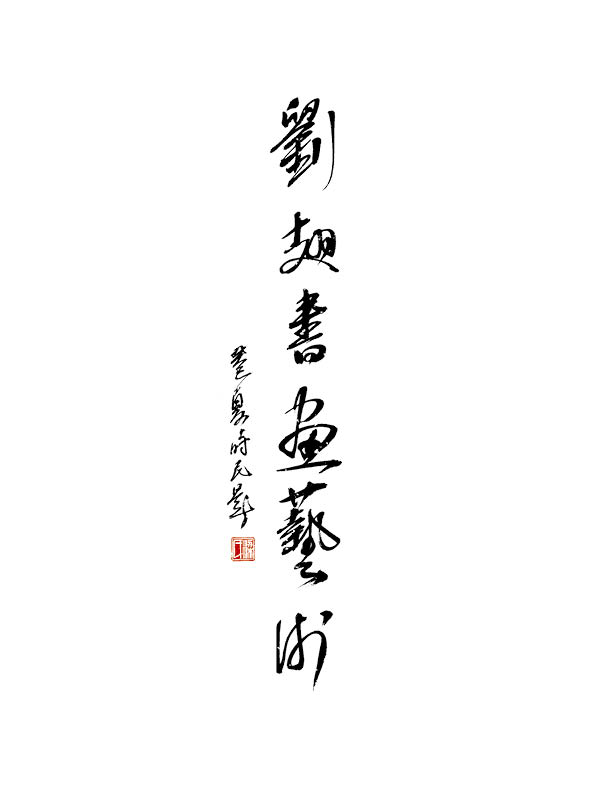 劉翅書畫藝術
夏時民題